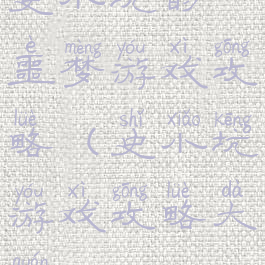 è mèng yóu xì gōng
噩梦游戏攻
luè shǐ xiǎo kēng
略(史小坑
yóu xì gōng luè dà
游戏攻略大